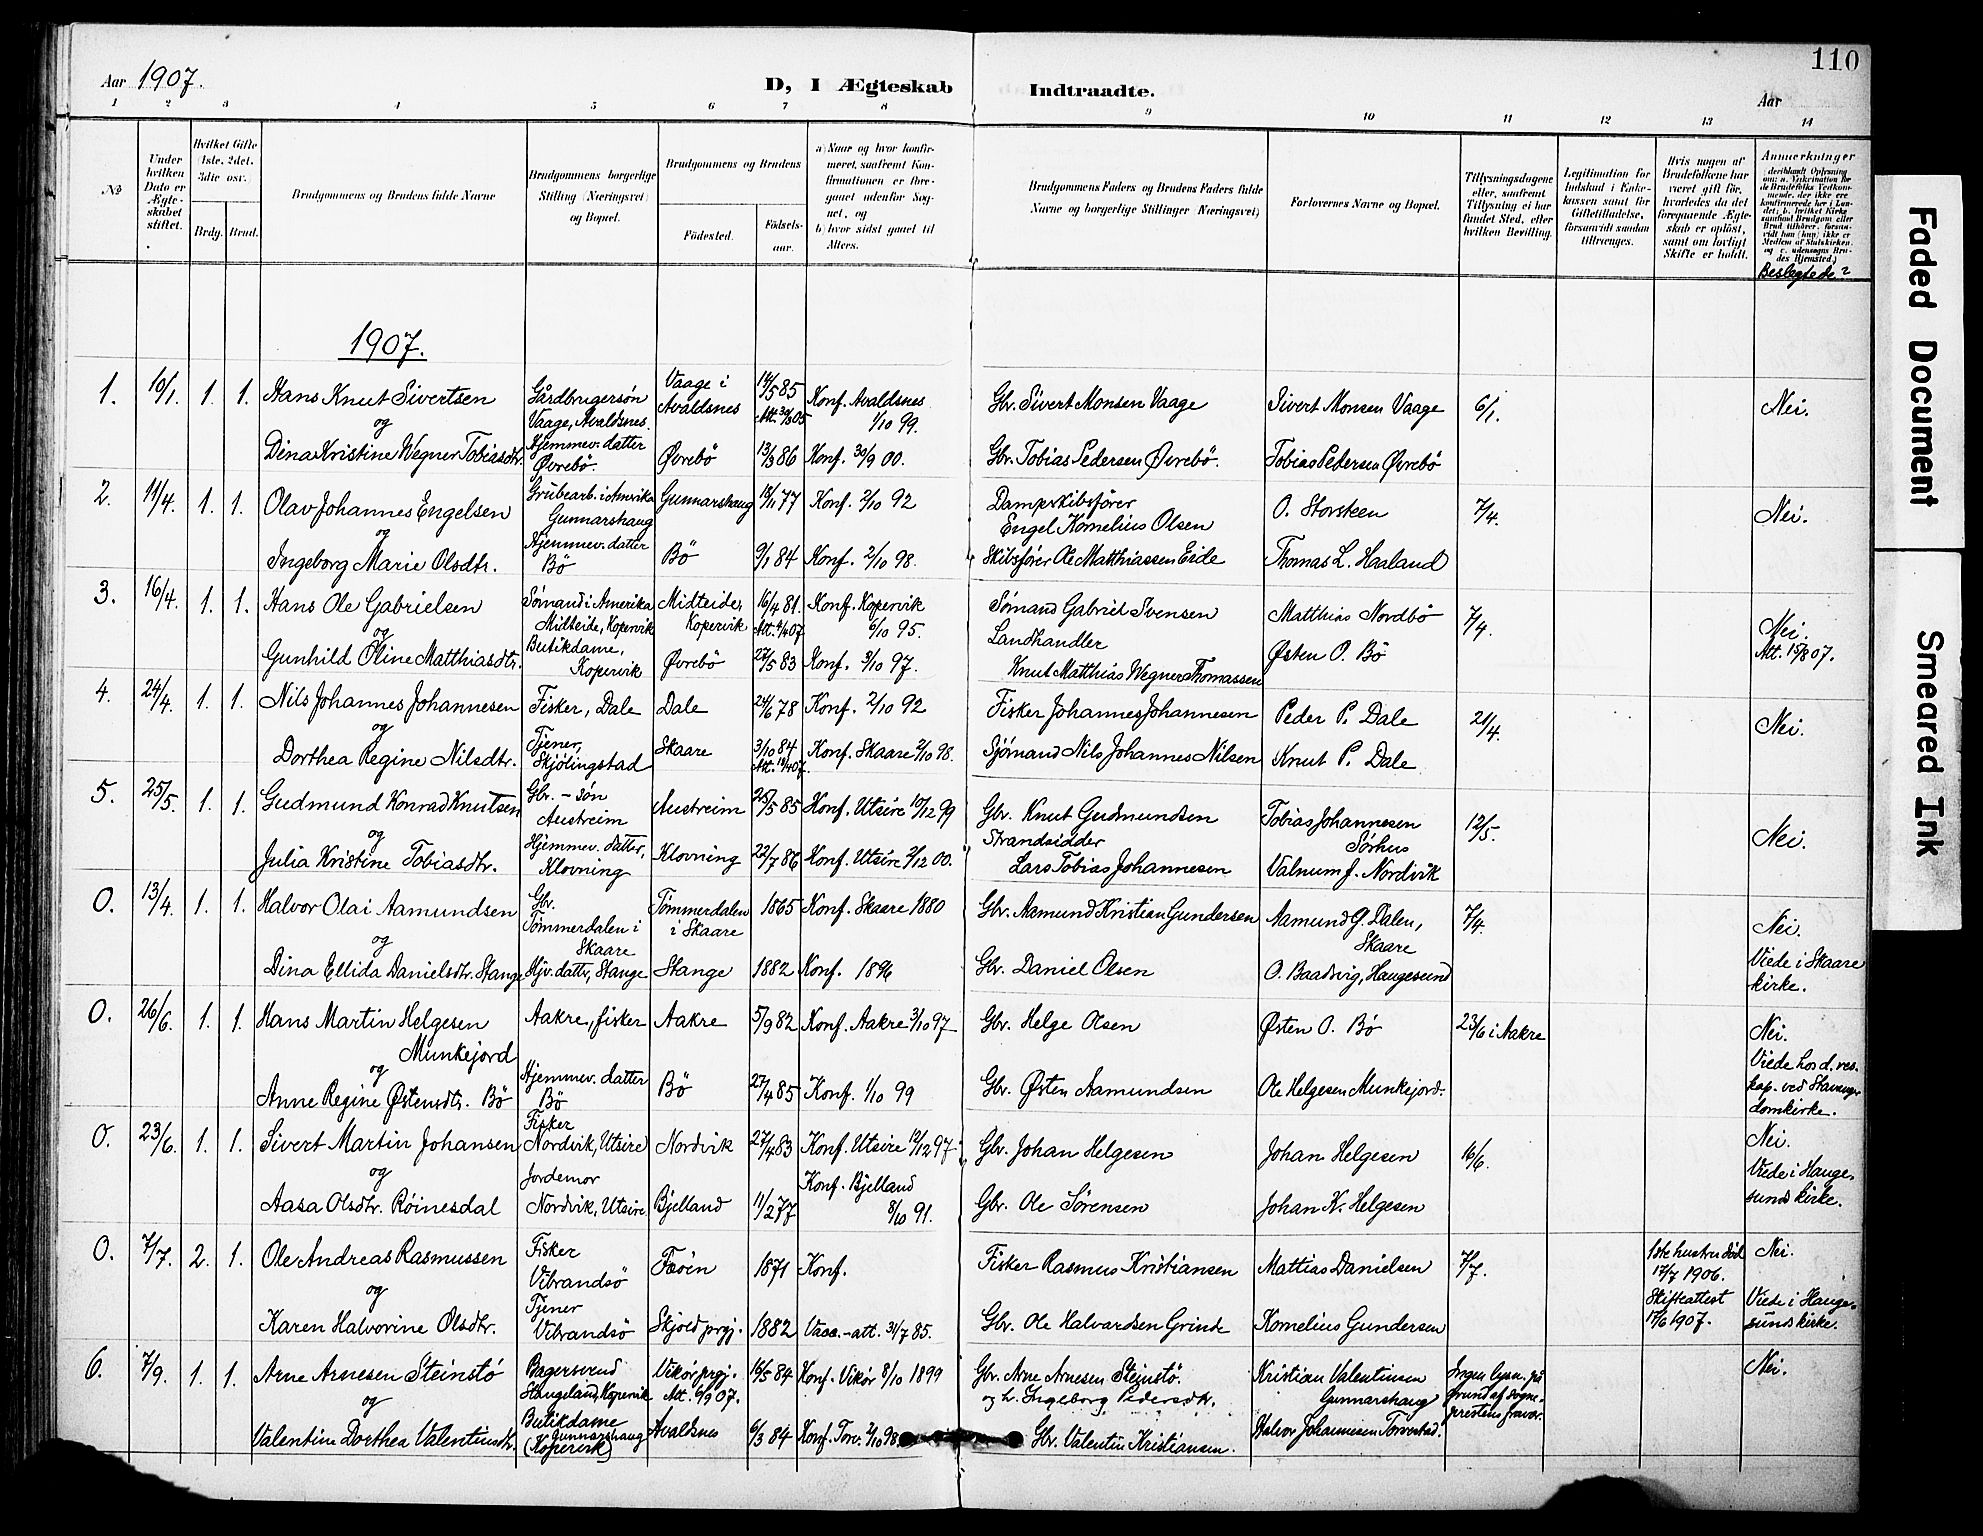 110
Aar 1907.
D, I Ægteskab Indtraadte.
Aar
1 2 3 4 5 6 7 8 9 10 11 12 13 14
№
Under hvilken Dato er Ægteskabet stiftet.
Hvilket Gifte (1ste, 2det, 3die osv.)
Brdg. Brud.
Brudgommens og Brudens fulde Navne
Brudgommens borgerlige Stilling (Næringsvei) og Bopæl.
Brudgommens og Brudens
Fødested. Fødselsaar.
a) Naar og hvor konfirmeret, saafremt Konfirmationen er foregaaet udenfor Sognet, og
b) hvor sidst gaaet til Alters.
Brudgommens Faders og Brudens Faders fulde Navne og borgerlige Stillinger (Næringsvei)
Forlovernes Navne og Bopæl.
Tillysningsdagene eller, saafremt Tillysning ei har fundet Sted, efter hvilken Bevilling.
Legitimation for Indskud i Enkekassen samt for Giftetilladelse, forsaavidt saadan tiltrænges.
Hvis nogen af Brudefolkene har været gift før, hvorledes da det foregaaende Ægteskab er opløst, samt om lovligt Skifte er holdt.
Anmerkninger
Beslegtede?
1907.
1. 10/1. 1. 1. Hans Knut Sivertsen Gårdbrugersøn Vaage, Avaldsnes. Vaage i Avaldsnes 14/5 85 Konf. Avaldsnes 1/10 99. Gbr. Sivert Monsen Vaage Sivert Monsen Vaage 6/1. Nei.
og
Dina Kristine Wegner Tobiasdtr. Hjemmev. datter Øvrebö. Øvrebö 13/3 86 Konf. 30/9 00. Gbr. Tobias Pedersen Øvrebö. Tobias Pedersen Øvrebö
2. 11/4. 1. 1. Olav Johannes Engelsen Grubearb. i Amerika Gunnarshaug Gunnarshaug 18/11 77 Konf. 2/10 92 Dampskibsfører Engel Kornelius Olsen O. Storsteen 7/4. Nei.
og
Ingeborg Marie Olsdtr. Hjemmev. datter Bö Bö 9/1 84 Konf. 2/10 98. Skibsfører Ole Matthiassen Eide Thomas L. Haaland
3. 16/4. 1. 1. Hans Ole Gabrielsen Sømand i Amerika Midteide, Kopervik Midteide, Kopervik 16/4 81. Konf. Kopervik 6/10 95. Sømand Gabriel Svensen Matthias Nordbö 7/4. Nei. Att. 15/8 07.
og
Gunhild Oline Matthiasdtr. Butikdame, Kopervik Øvrebö 27/5 83 Konf. 3/10 97. Landhandler Knut Matthias Wegner Thomassen Østen O. Bö
4. 24/4. 1. 1. Nils Johannes Johannesen Fisker, Dale Dale 24/6 78 Konf. 2/10 92 Fisker Johannes Johannesen Peder P. Dale 21/4. Nei.
og
Dorthea Regine Nilsdtr. Tjener, Skjölingstad Skaare 3/10 84 Konf. Skaare 2/10 98. Sjömand Nils Johannes Nilsen Knut P. Dale
5. 25/5. 1. 1. Gudmund Konrad Knutsen Gbr.-søn Austreim Austreim 25/5 85 Konf. Utsire 10/12 99 Gbr. Knut Gudmundsen Tobias Johannesen Sørhus 12/5. Nei.
og
Julia Kristine Tobiasdtr. Hjemmev. datter, Klovning Klovning 22/7 86 Konf. Utsire 2/12 00. Strandsidder Lars Tobias Johannesen Valnum J. Nordvik
0. 13/4. 1. 1. Halvor Olai Aamundsen Gbr. Tömmerdalen i Skaare Tömmerdalen i Skaare 1865 Konf. Skaare 1880 Gbr. Aamund Kristian Gundersen Aamund G. Dalen, Skaare 7/4. Nei.
og
Dina Ellida Danielsdtr. Stange Hjv. datter, Stange Stange 1882 Konf. 1896 Gbr. Daniel Olsen O. Baadsvig, Haugesund Viede i Skaare kirke.
0. 26/6. 1. 1. Hans Martin Helgesen Munkejord Aakre, fisker Aakre 5/9 82 Konf. Aakre 3/10 97 Gbr. Helge Olsen Østen O. Bö 23/6 i Aakre Nei.
og
Anne Regine Østensdtr. Bö Hjemmev. datter Bö Bö 27/4 85 Konf. 1/10 99 Gbr. Østen Aamundsen Ole Helgesen Munkejord. Viede hos d. res. kap. ved Stavanger domkirke.
0. 23/6. 1. 1. Sivert Martin Johansen Fisker Nordvik, Utsire Nordvik 27/4 83 Konf. Utsire 12/12 97 Gbr. Johan Helgesen Johan Helgesen 16/6. Nei.
og
Aasa Olsdtr. Röinesdal Jordemor Nordvik, Utsire Bjelland 11/2 77 Konf. Bjelland 8/10 91. Gbr. Ole Sörensen Johan K. Helgesen Viede i Haugesunds kirke.
0. 7/7. 2. 1. Ole Andreas Rasmussen Fisker Vibrandsö Fæöin 1871 Konf. Fisker Rasmus Kristiansen Mattias Danielsen 7/7. 1ste hustru död 17/7 1906. Skifteattest 17/6 1907. Nei.
og
Karen Halvorine Olsdtr. Tjener Vibrandsö Skjold prgj. 1882 Vacc.-att. 31/7 85. Gbr. Ole Halvardsen Grinde Kornelius Gundersen Viede i Haugesunds kirke.
6. 7/9. 1. 1. Arne Arnesen Steinstö Bagersvend Stangeland, Kopervik Vikör prgj. Att. 6/9 07. 16/5 84 Konf. Vikör 8/10 1899 Gbr. Arne Arnesen Steinstö. og h. Ingeborg Pedersdtr. Kristian Valentinsen Gunnarshaug Ingen lysn. på grund af sogneprestens fravær. Nei.
og
Valentine Dorthea Valentinsdtr. Butikdame Gunnarshaug (Kopervik) Avaldsnes 6/3 84 Konf. Torv. 2/10 98 Gbr. Valentin Kristiansen. Halvor Johannesen Torvestad.
Faded Document
Smeared Ink